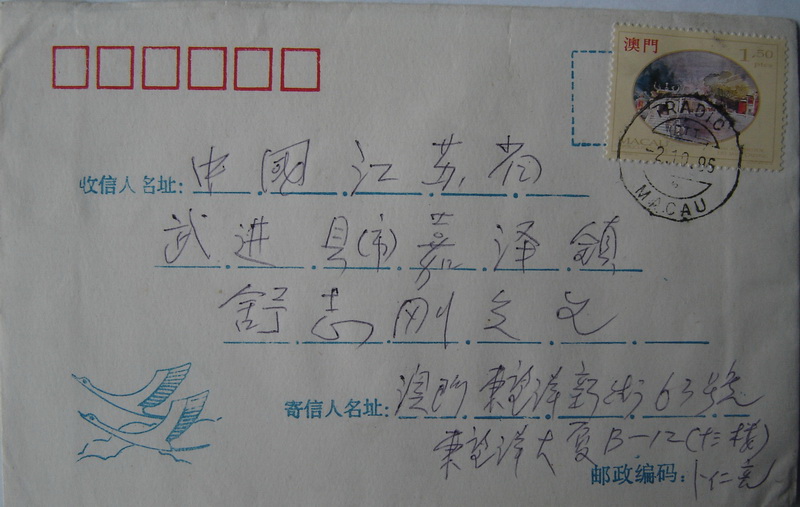 澳門
1.50
MACAU
RADIO
-2.10.96
MACAU
收信人名址: 中國江苏省
武进县(市)嘉泽鎮
舒志刚
寄信人名址: 澳門東望洋新街63號
東望洋大厦B-12(十三樓)
邮政编码: 卜仁亮